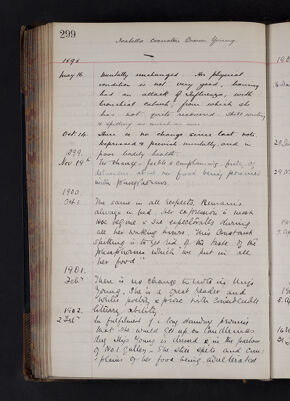 299
Isabella Brown Young
1898
May 16. Mentally unchanged. Her physical
condition is not very good, having
had an attack of Influenza, with
bronchial catarrh from which she
has not quite recovered. Still
& spitting as much as ever.
Oct. 14. There is no change since last note.
Depressed & mentally and in
poor bodily health.
1899.
Nov 14th No change. Feeble & complaining, full of
delusions about her food being poisoned
with phosphorus.
1900.
Oct 1. The same in all respects. Remains
always in bed. Her expression is most
& she expectorates during
all her waking hours. This constant
spitting is to get rid of the taste of the
"phosphorus which we put in all
her food"
1901.
Feb There is no change to note in Miss
Young. She is a great reader and
writes poetry & prose with considerable
literary ability.
1902.
2 Feb In fulfilment of a long standing promise
that she would get up on Candlemas
day Miss Young is dressed & in the parlor
of No 1 Gallery. She still spits and com-
plains of her food being adulterated